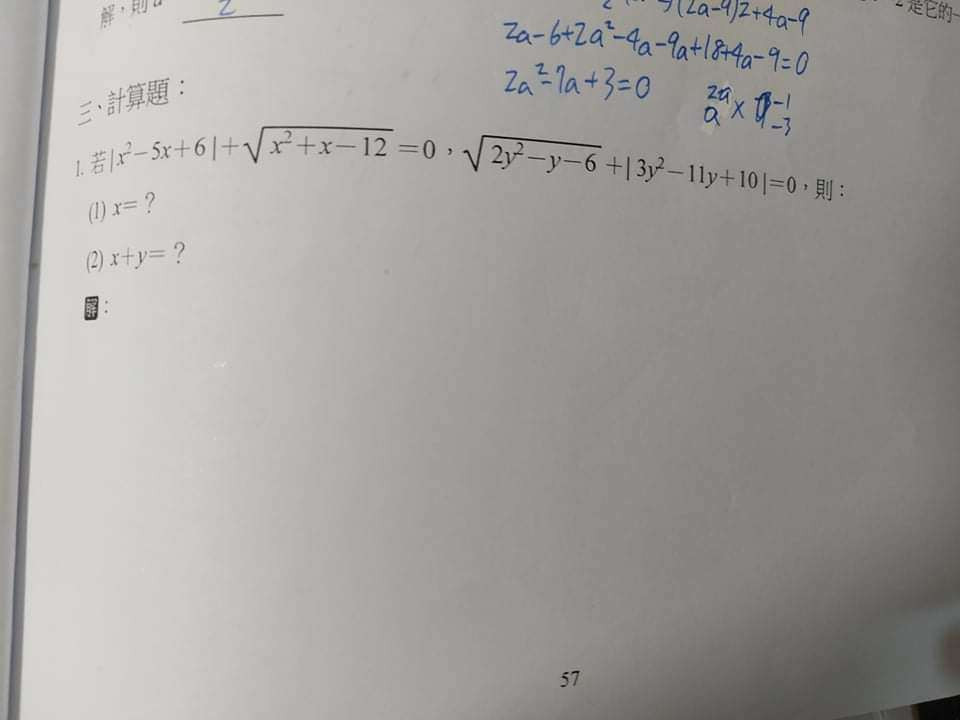 解，則a
2
(2a-9)2+4a-9
2a-6+2a²-4a-9a+18+4a-9=0
2a²-7a+3=0
2a -1
a × -3
是它的一
三、計算題：
1. 若|x²-5x+6|+√(x²+x-12)=0，√(2y²-y-6)+|3y²-11y+10|=0，則：
(1) x=？
(2) x+y=？
解：
57